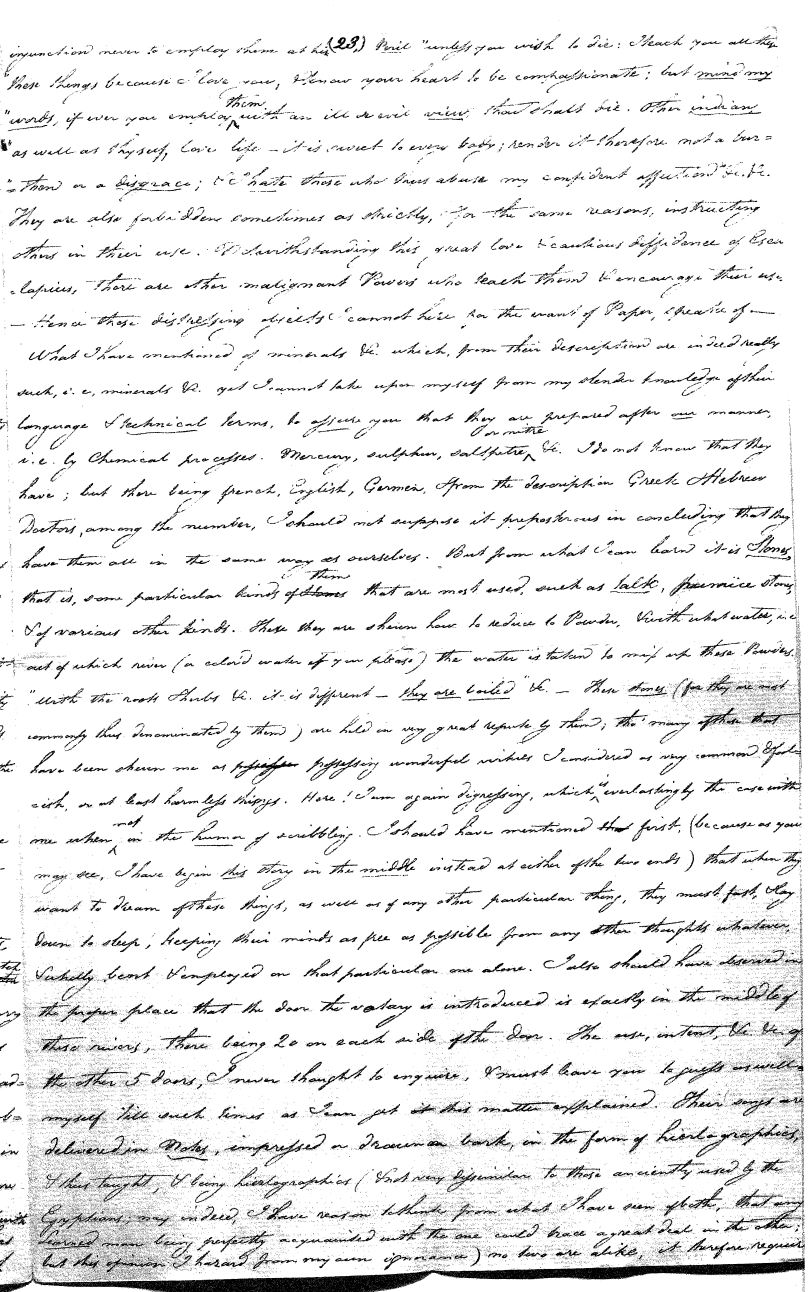 (23.)
injunction never to employ them at his Peril "unless you wish to die: I teach you all these
"these things because I love you, & know your heart to be compassionate; but mind my
"words, if ever you employ them with an ill or evil view, thou shalt die. Other indians,
"as well as thyself, love life – it is sweet to every body; render it therefore not a bur=
"=then or a disgrace; & I hate those who thus abuse my confident affection" &c. &c.
They are also forbidden sometimes as strictly, for the same reasons, instructing
others in their use. Notwithstanding this great love & cautious diffidence of Escu
-lapius, there are other malignant Powers who teach them & encourage their use.
— Hence those distressing objects I cannot here for the want of Paper, speake of —
What I have mentioned of minerals &c. which, from their description are indeed really
such, i.e, minerals &c. yet I cannot take upon myself from my slender knowledge of their
language & technical terms, to assure you that they are prepared after our manner,
i.e. by Chemical processes. Mercury, sulphur, saltpetre or nitre &c. I do not know that they
have; but there being french, English, German, & from the description Greek & Hebrew
Doctors, among the number, I should not suppose it preposterous in concluding that they
have them all in the same way as ourselves. But from what I can learn it is Stones,
that is, some particular kinds of them that are most used, such as talk, pumice stones,
& of various other kinds. These they are shewn how to reduce to Powder, & with what water, i.e
out of which river (or color'd water if you please) the water is taken to mix up these Powders.
"With the roots & herbs &c. it is different – they are boiled" &c – These stones (for they are most
commonly thus denominated by them) are held in very great repute by them; tho' many of those that
have been shewn me as possessing wonderful virtues I considered as very common & fal=
cish, or at least harmless things. Here! I am again digressing, which is everlastingly the case with
me when not in the humor of scribbling. I should have mentioned first, (because as you
may see, I have begin this story in the middle instead at either of the two ends) that when they
want to dream of these things, as well as of any other particular thing, they must fast, & lay
down to sleep; keeping their minds as free as possible from any other thoughts whatever,
& wholly bent & employed on that particular one alone. I also should have observed in
the proper place that the door the votary is introduced is exactly in the middle of
these rivers, there being 20 on each side of the door. The use, intent, &c &c. of
the other 5 doors, I never thought to enquire, & must leave you to guess as well=
myself 'till such times as I can get this matter explained. Their songs are
delivered in Notes, impressed or drawn on bark, in the form of hierlographics,
& thus taught; & being hierlographics (& not very dissimilar to those anciently used by the
Egyptians; may indeed, I have reason to think from what I have seen of both, that any
learned man being perfectly acquainted with the one could trace a great deal in the other;
but this opinion I hazard from my own ignorance) no two are alike, it therefore requires